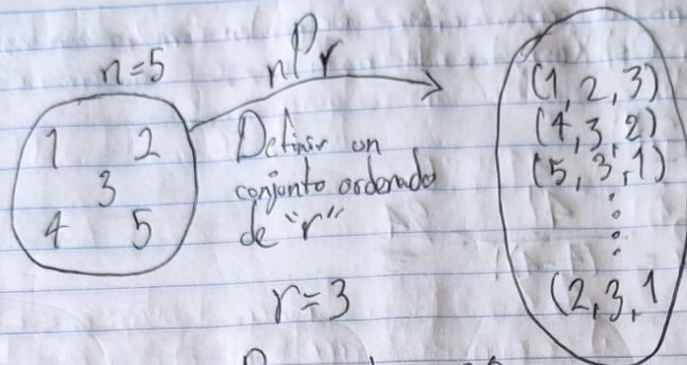 n=5
nPr
1 2
3
4 5
Definir un
conjunto ordenado
de "r"
r=3
(1,2,3)
(4,3,2)
(5,3,1)
(2,3,1